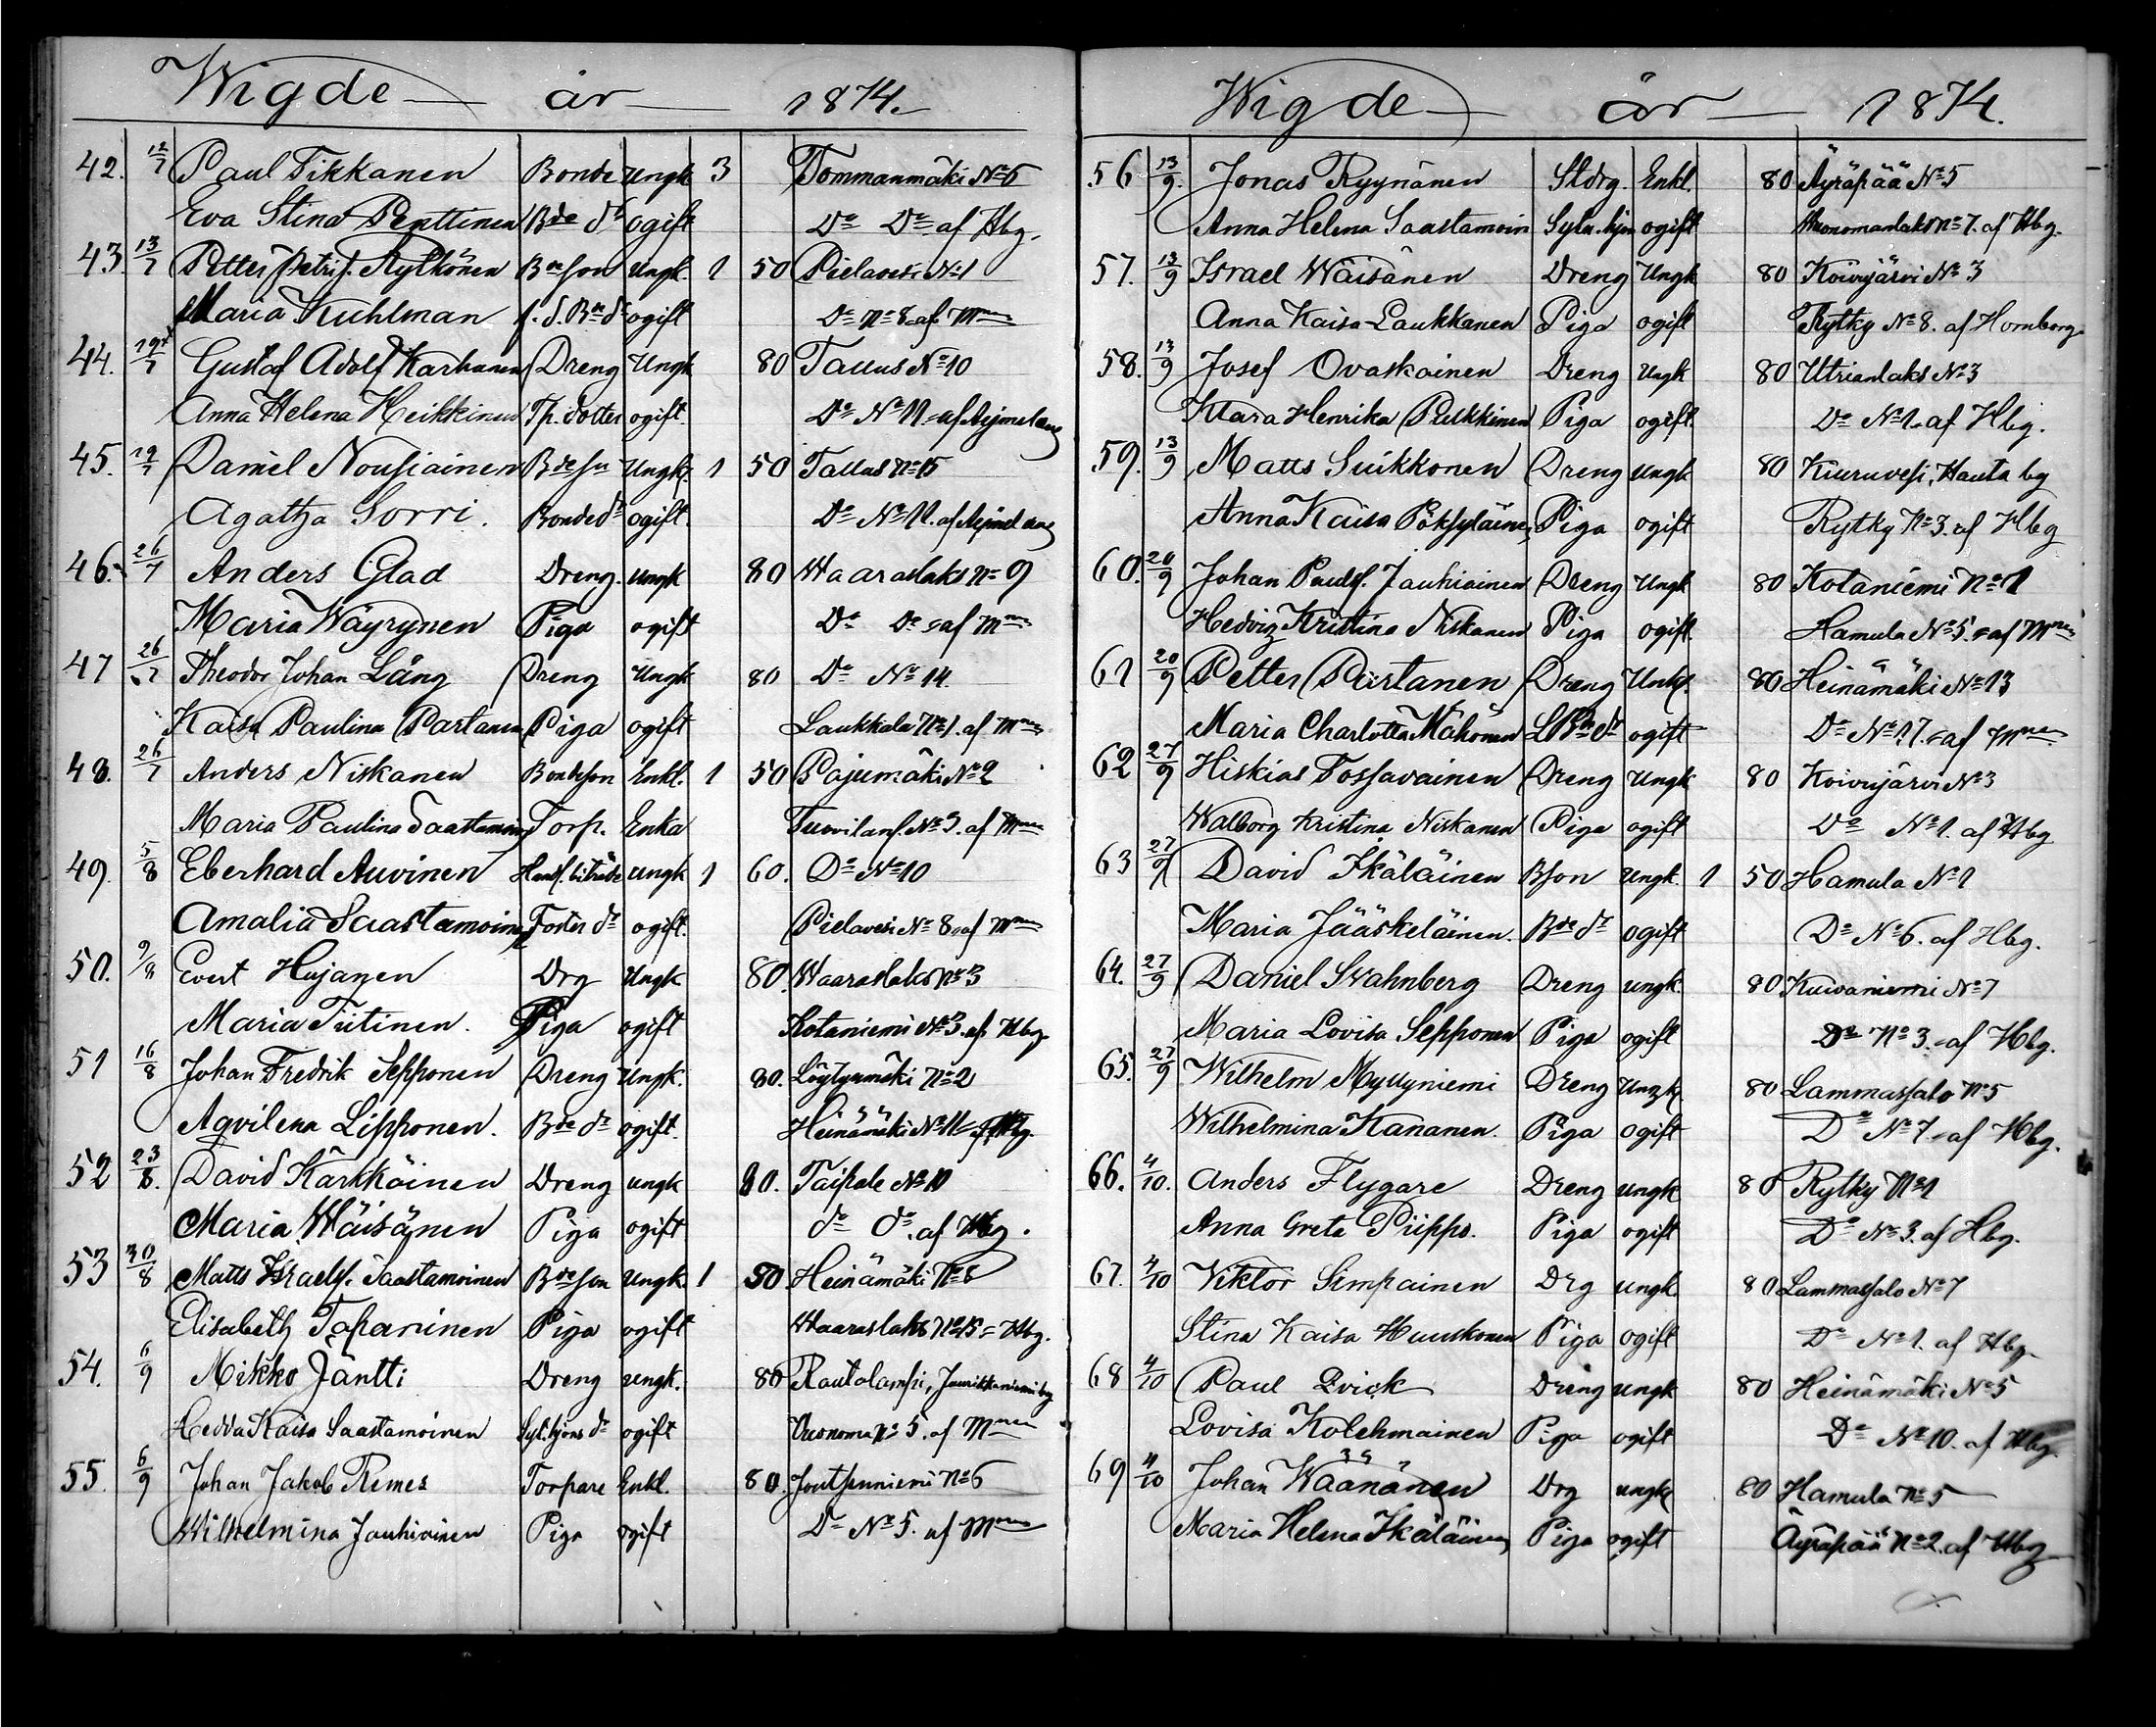 Wigde år 1874.
42. 12/7 Paul Tikkanen Bonde Ungk 3 Tommanmäki No 6
Eva Stina Penttinen Bde dr ogift Do Do af Hbg.
43 13/7 Petter Petrif. Rytkönen Bdeson Ungk. 1 50 Pielavesi No 1
Maria Kuhlman f. d. Bde dr ogift Do No 8 af Mnen
44. 19/7 Gustaf Adolf Karhunen Dreng Ungk 80 Tallus No 10
Anna Helena Heikkinen Tp. dotter ogift. Do No 11 af
45. 19/7 Daniel Nousiainen Bdeson Ungk. 1 50 Tallus No 15
Agatha Sorri. Bonde dr ogift. Do No 11. af
46. 26/7 Anders Glad Dreng. ungk 80 Waaraslaks No 9
Maria Wäyrynen Piga ogift Do Do af Mnen
47 26/7 Theodor Johan Lång Dreng Ungk 80 Do No 14.
Kaisa Paulina Partanen Piga ogift Laukkala No 1. af Mnen
48. 26/7 Anders Niskanen Bondeson Enkl. 1 50 Pajumäki No 2
Maria Paulina Saastamoinen Torp. Enka No 3. af Mnen
49. 5/8 Eberhard Auvinen Handl. biträde ungk 1 60. Do No 10
Amalia Saastamoinen Foster dr ogift. Pielavesi No 8 af Mnen
50. 9/8 Evert Hujanen Drg Ungk 80. Waaraslaks No 3
Maria Tiitinen. Piga ogift Kotaniemi No 3. af Hbg.
51 16/8 Johan Fredrik Sepponen Dreng Ungk. 80. Löytynmäki No 2
Aqvilena Lipponen. Bde dr ogift. Heinämäki No 11 af Hbg.
52 23/8. David Kärkkäinen Dreng ungk 80. Taipale No 10
Maria Wäisänen Piga ogift do do. af Hbg.
53 30/8 Matts Israelf. Saastamoinen Bdeson Ungk 1 50 Heinämäki No 8
Elisabeth Tapaninen Piga ogift Waaraslaks No 15 = Hbg.
54. 6/9 Mikko Jäntti Dreng ungk. 80 Rautalampi,
Hedda Kaisa Saastamoinen Syt. hjons dr ogift Vuonoma No 5. af Mnen
55. 6/9 Johan Jakob Remes Torpare Enkl. 80. Joutsenniemi No 6
Wilhelmina Jauhiainen Piga ogift Do No 5. af Mnen
Wigde år 1874.
56 13/9. Jonas Ryynänen Stdrg. Enkl. 80 Äyräpää No 5
Anna Helena Saastamoin Sytn. hjon ogift Vuonomanlaks No 7. af Hbg.
57. 13/9 Israel Wäisänen Dreng Ungk 80 Koivujärvi No 3
Anna Kaisa Laukkanen Piga ogift Rytky No 8. af Hornborg
58. 13/9 Josef Ovaskainen Dreng Ungk 80 Utrianlaks No 3
Klara Henrika Pulkkinen Piga ogift. Do No 1. af Hbg.
59. 13/9 Matts Suikkonen Dreng Ungk 80 Kiuruvesi, Hauta by
Anna Kaisa Pöksyläinen Piga ogift Rytky No 3. af Hbg
60. 20/9 Johan Paulf. Jauhiainen Dreng Ungk 80 Kotaniemi No 1
Hedvig Kristina Niskanen Piga ogift Hamula No 5. af Mnen
61 20/9 Petter Partanen Dreng Unk. 80 Heinämäki No 13
Maria Charlotta Mähönen LBde dr ogift Do No 17. af Mnen
62 27/9 Hiskias Tossavainen Dreng Ungk 80 Koivujärvi No 3
Walborg Kristina Niskanen Piga ogift Do No 1. af Hbg
63 27/9 David Ikäläinen Bson Ungk. 1 50 Hamula No 1
Maria Jääskeläinen. Bde dr ogift Do No 6. af Hbg.
64. 27/9 Daniel Svahnberg Dreng ungk. 80 Kuivaniemi No 7
Maria Lovisa Sepponen Piga ogift Do No 3. af Hbg.
65. 27/9 Wilhelm Myllyniemi Dreng Ungk 80 Lammassalo No 5
Wilhelmina Kananen. Piga ogift Do No 7. af Hbg.
66. 4/10. Anders Flygare Dreng ungk 80 Rytky No 1
Anna Greta Piippo. Piga ogift Do No 3. af Hbg.
67. 4/10 Viktor Simpainen Drg ungk 80 Lammassalo No 7
Stina Kaisa Huuskonen Piga ogift Do No 1. af Hbg.
68 4/10 Paul Qvick Dreng ungk 80 Heinämäki No 5
Lovisa Kolehmainen Piga ogift Do No 10. af Hbg.
69 4/10 Johan Wäänänen Drg ungk 80 Hamula No 5
Maria Helena Ikäläinen Piga ogift Äyräpää No 2. af Hbg